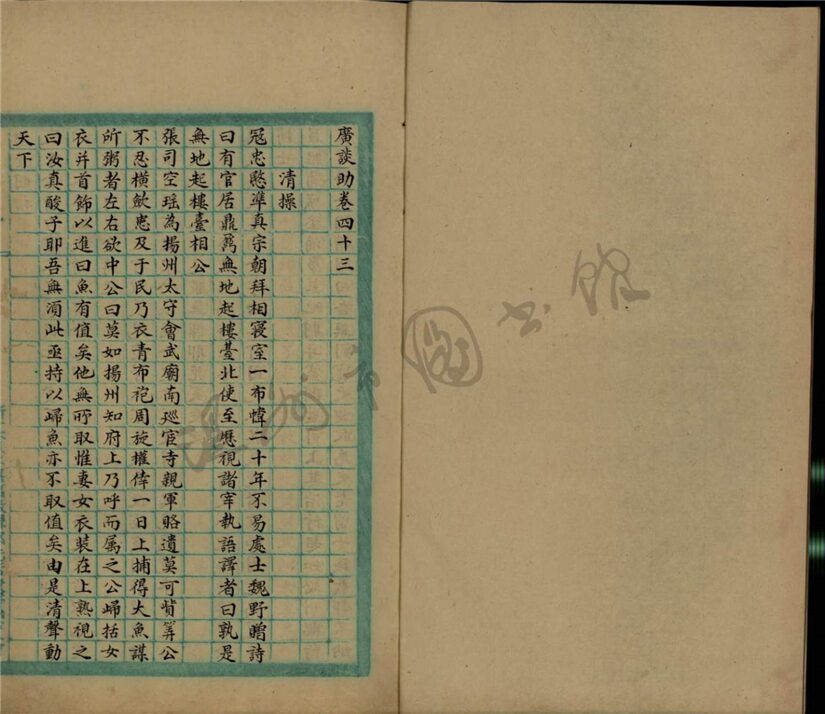 廣談助卷四十三
清操
冠忠愍準真宗朝拜相寢室一布幃二十年不易處士魏野贈詩
曰有官居鼎鼐無地起樓臺北使至歷視諸宰執語譯者曰孰是
無地起樓臺相公
張司空瑤為揚州太守會武廟南廵宦寺親軍賂遺莫可貲筭公
不忍橫歛患及于民乃衣青布袍周旋權倖一日上捕得大魚謀
所粥者左右欲中公曰莫如揚州知府上乃呼而属之公歸括女
衣并首飾以進曰魚有值矣他無所取惟妻女衣裝在上熟視之
曰汝真酸子耶吾無湏此亟持以歸魚亦不取值矣由是清聲動
天下
圖書館